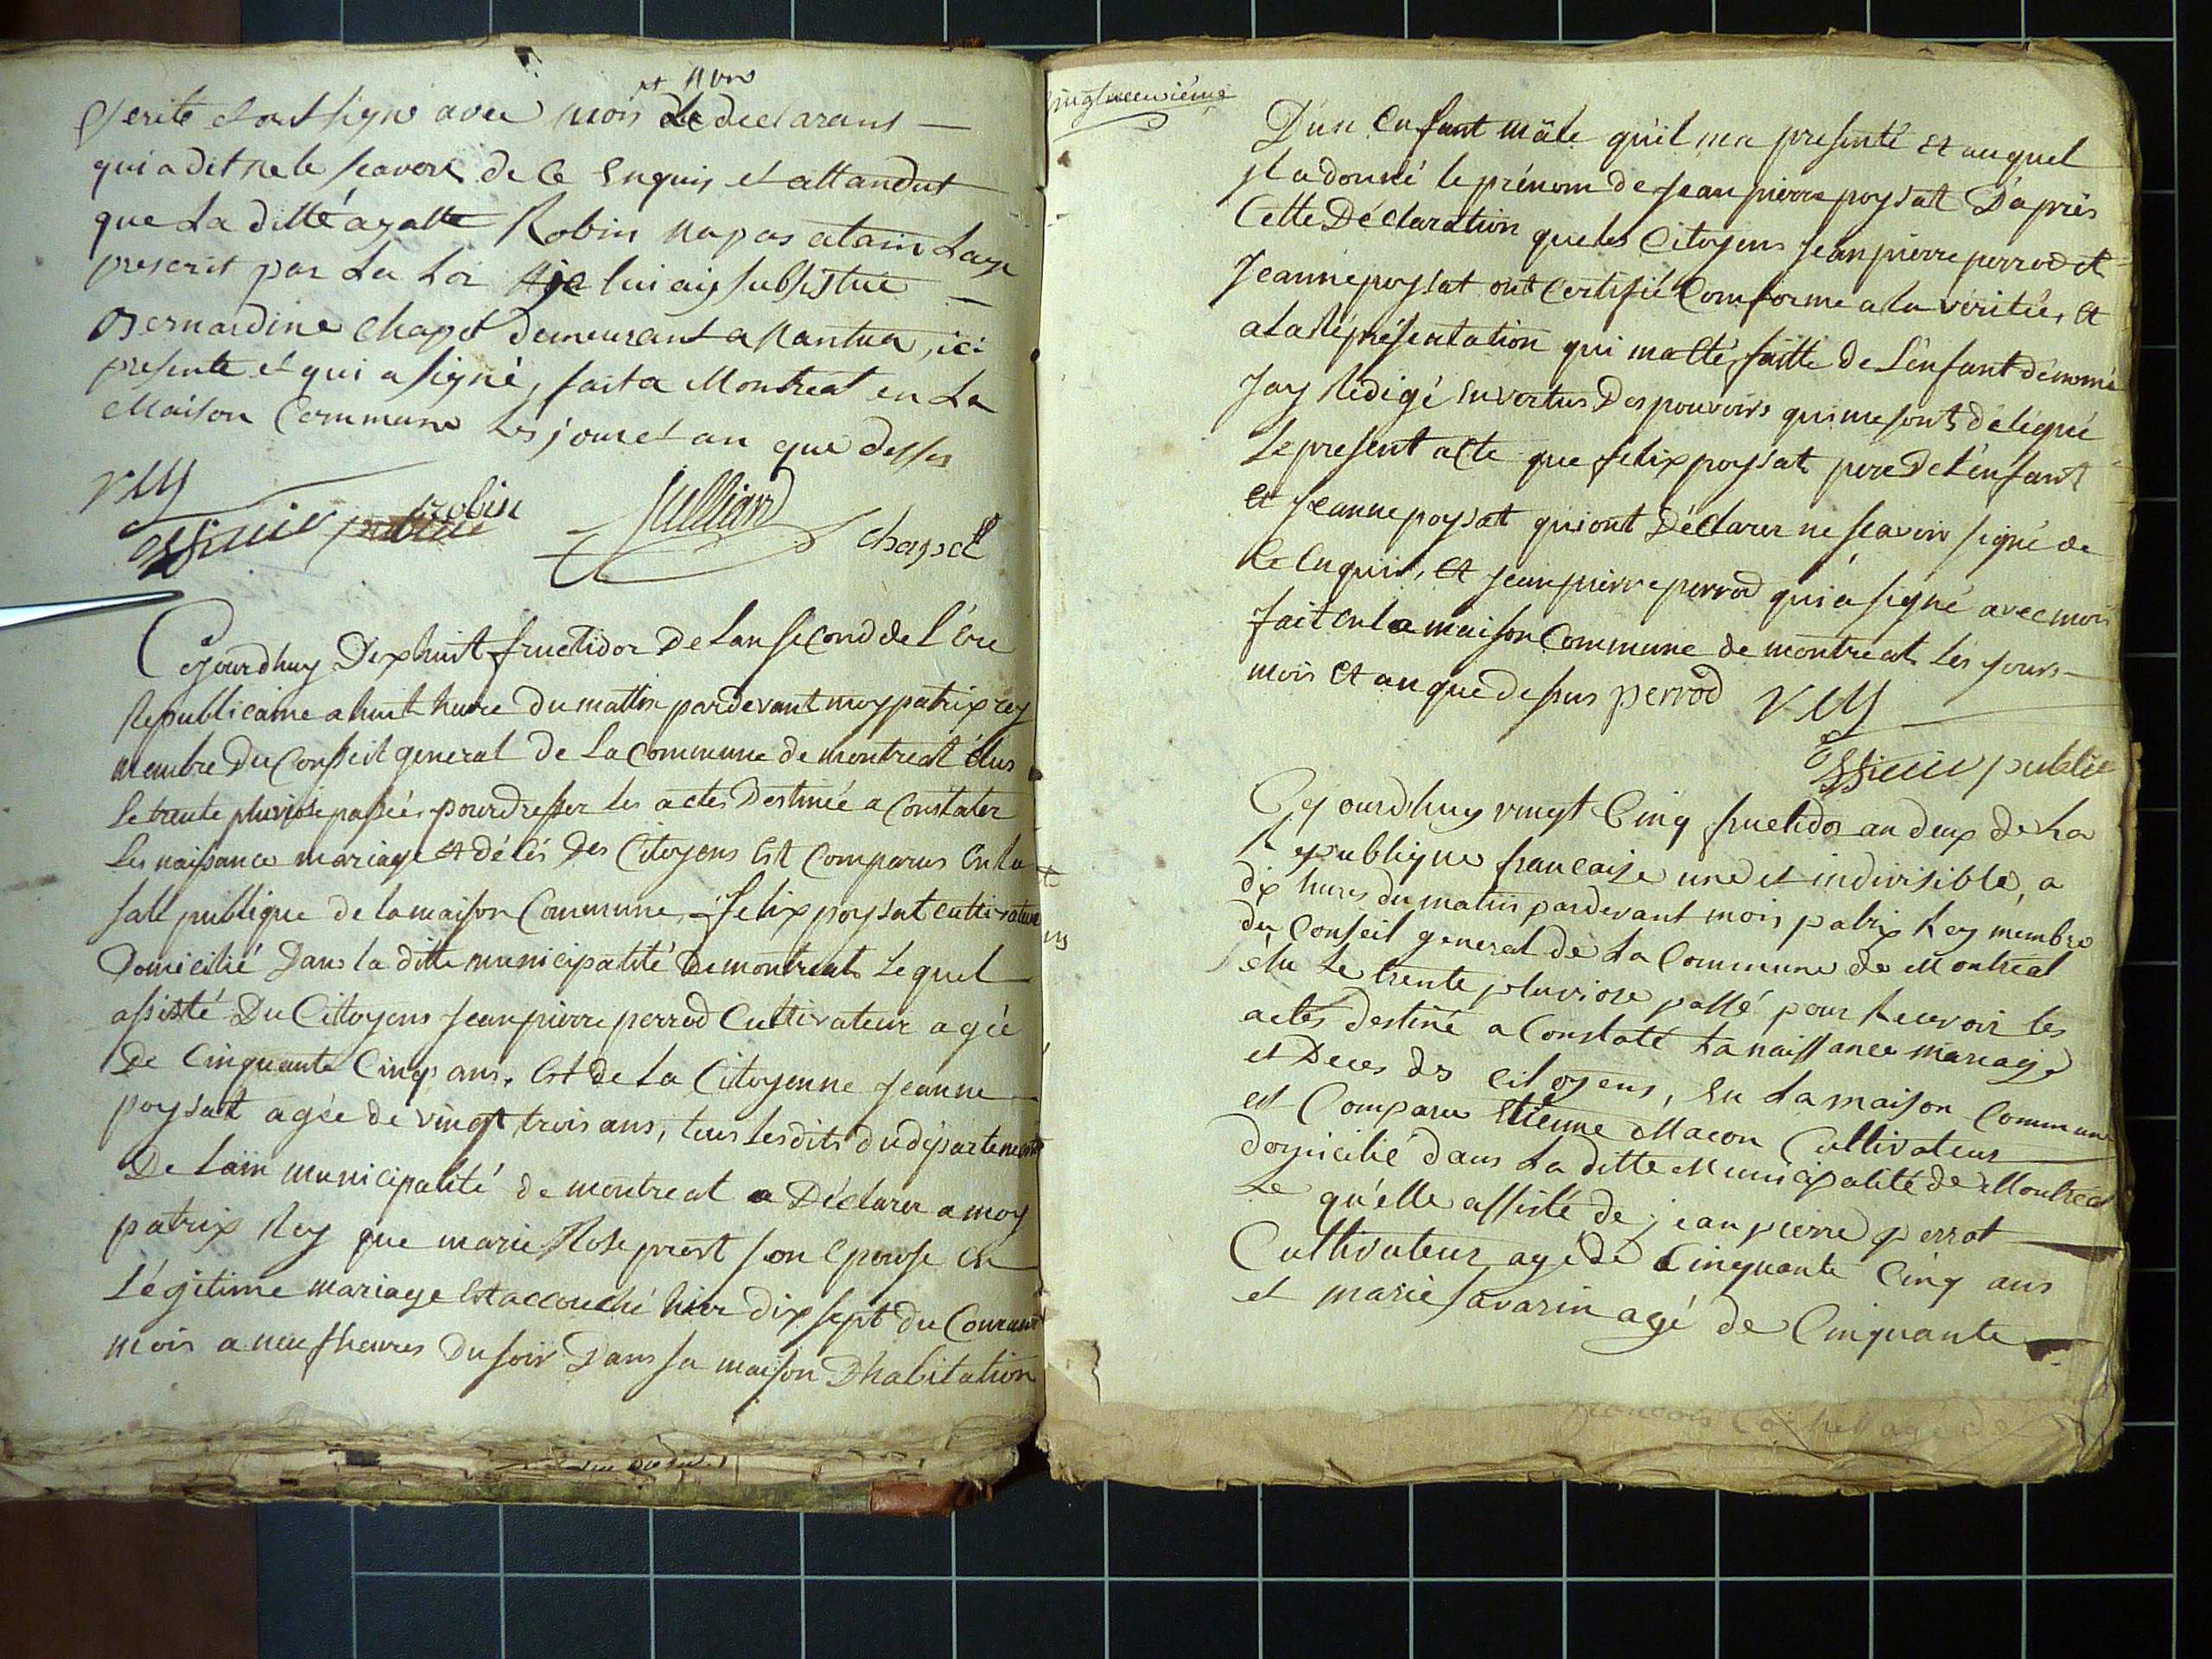 verite et ont signé avec mois et non
le declarant
qui a dit ne le scavoir de ce enquis et attandut
que la ditte agatte Robin na pas ataint lage
prescrit par la Loi je lui ais substitué
Bernardine chapel demeurant a Nantua, ici
presente et qui a signé, fait a Montreal en La
Maison Commune les jour et an que dessus
rey
officier public
robin
Julliard
chapel
Cejourdhuy Dixhuit fructidor De Lan second de L'ere
Republicaine a huit heure Du mattin pardevant moy patrix rey
membre Du Conseil general de La Commune de montreal élus
Le trente pluviose passée, pour dresser les actes Destinée a Constater
Les naissance mariage et décès Des Citoyens Est Comparus En la
sall publique de la maison Commune, felix poysat cultivateur
Domicilié Dans la ditte municipalité De montreal, Le quel
assisté Du Cittoyens Jean pierre perrod Cultivateur agée
De Cinquante Cinq ans, Et de La Citoyenne Jeanne
poysat agée de vingt trois ans, tous lesdits du département
De Lain municipalité de montreal a Déclarer a moy
patrix Rey que marie Rose prost son Epouse en
Légitime mariage Est accouché hier dix sept du Courant
mois a neuf heures Du soir Dans sa maison D'habitation
vingtneuvième
D'un Enfant mâle qu'il ma presenté et auquel
jl a donné le prénom de Jean pierre poysat D'après
Cette Déclaration que les Citoyens Jean pierre perrod et
Jeanne poysat ont Certifié Comforme a la véritée, et
a La Représentation qui ma été faitte de L'enfant dénomé
Jay Redigé En vertus Des pouvoirs qui me sont délégué
Le present acte que felix poysat pere de L'enfant
et Jeanne poysat qui ont Déclarer ne scavoir signé de
Ce Enquis, et jean pierre perrod qui a signé avec mois
fait En la maison Commune de montreal Les jours
mois et an que dessus perrod rey
officier public
Cejourdhuy vingt Cinq fructidor an deux de La
Republique francaise une et indivisible, a
dix heures du matin pardevant mois patrix Rey membre
du Conseil general de La Commune de Montreal
élu Le trente pluviose passé pour Recevoir les
actes destiné a Constaté La naissance mariage
et Deces des Citoyens, En La maison Commune
est Comparu Etienne Macon Cultivateur
domicilié dans La ditte Municipalité de Montreal
Le qu'elle assisté de jean pierre perrot
Cultivateur agé de Cinquante Cinq ans
et marie Savarin agé de Cinquante